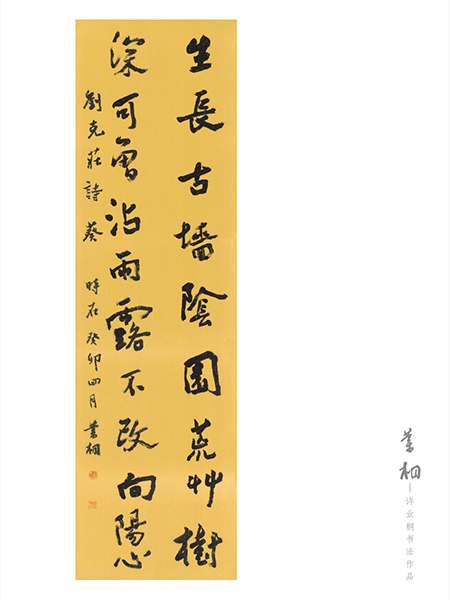 生長古墻陰園荒艸樹
深可曾沾雨露不改向陽心
劉克莊詩葵 時在癸卯四月業桐
業桐
许业桐书法作品